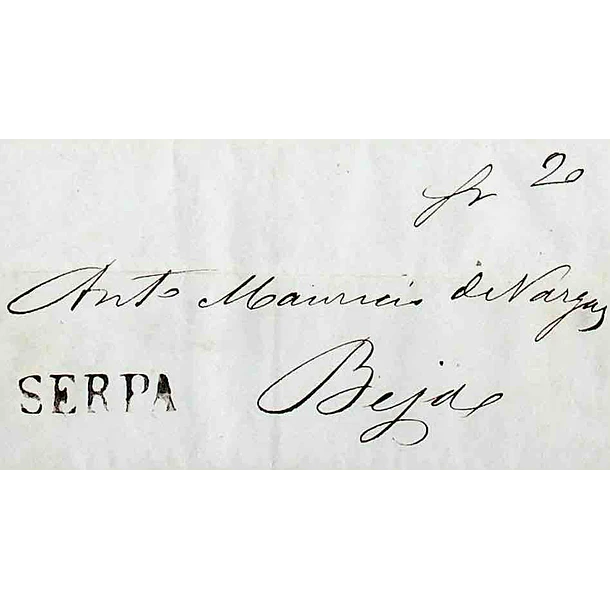 fr 20
Anto Mauricio de Vargas
SERPA Beja